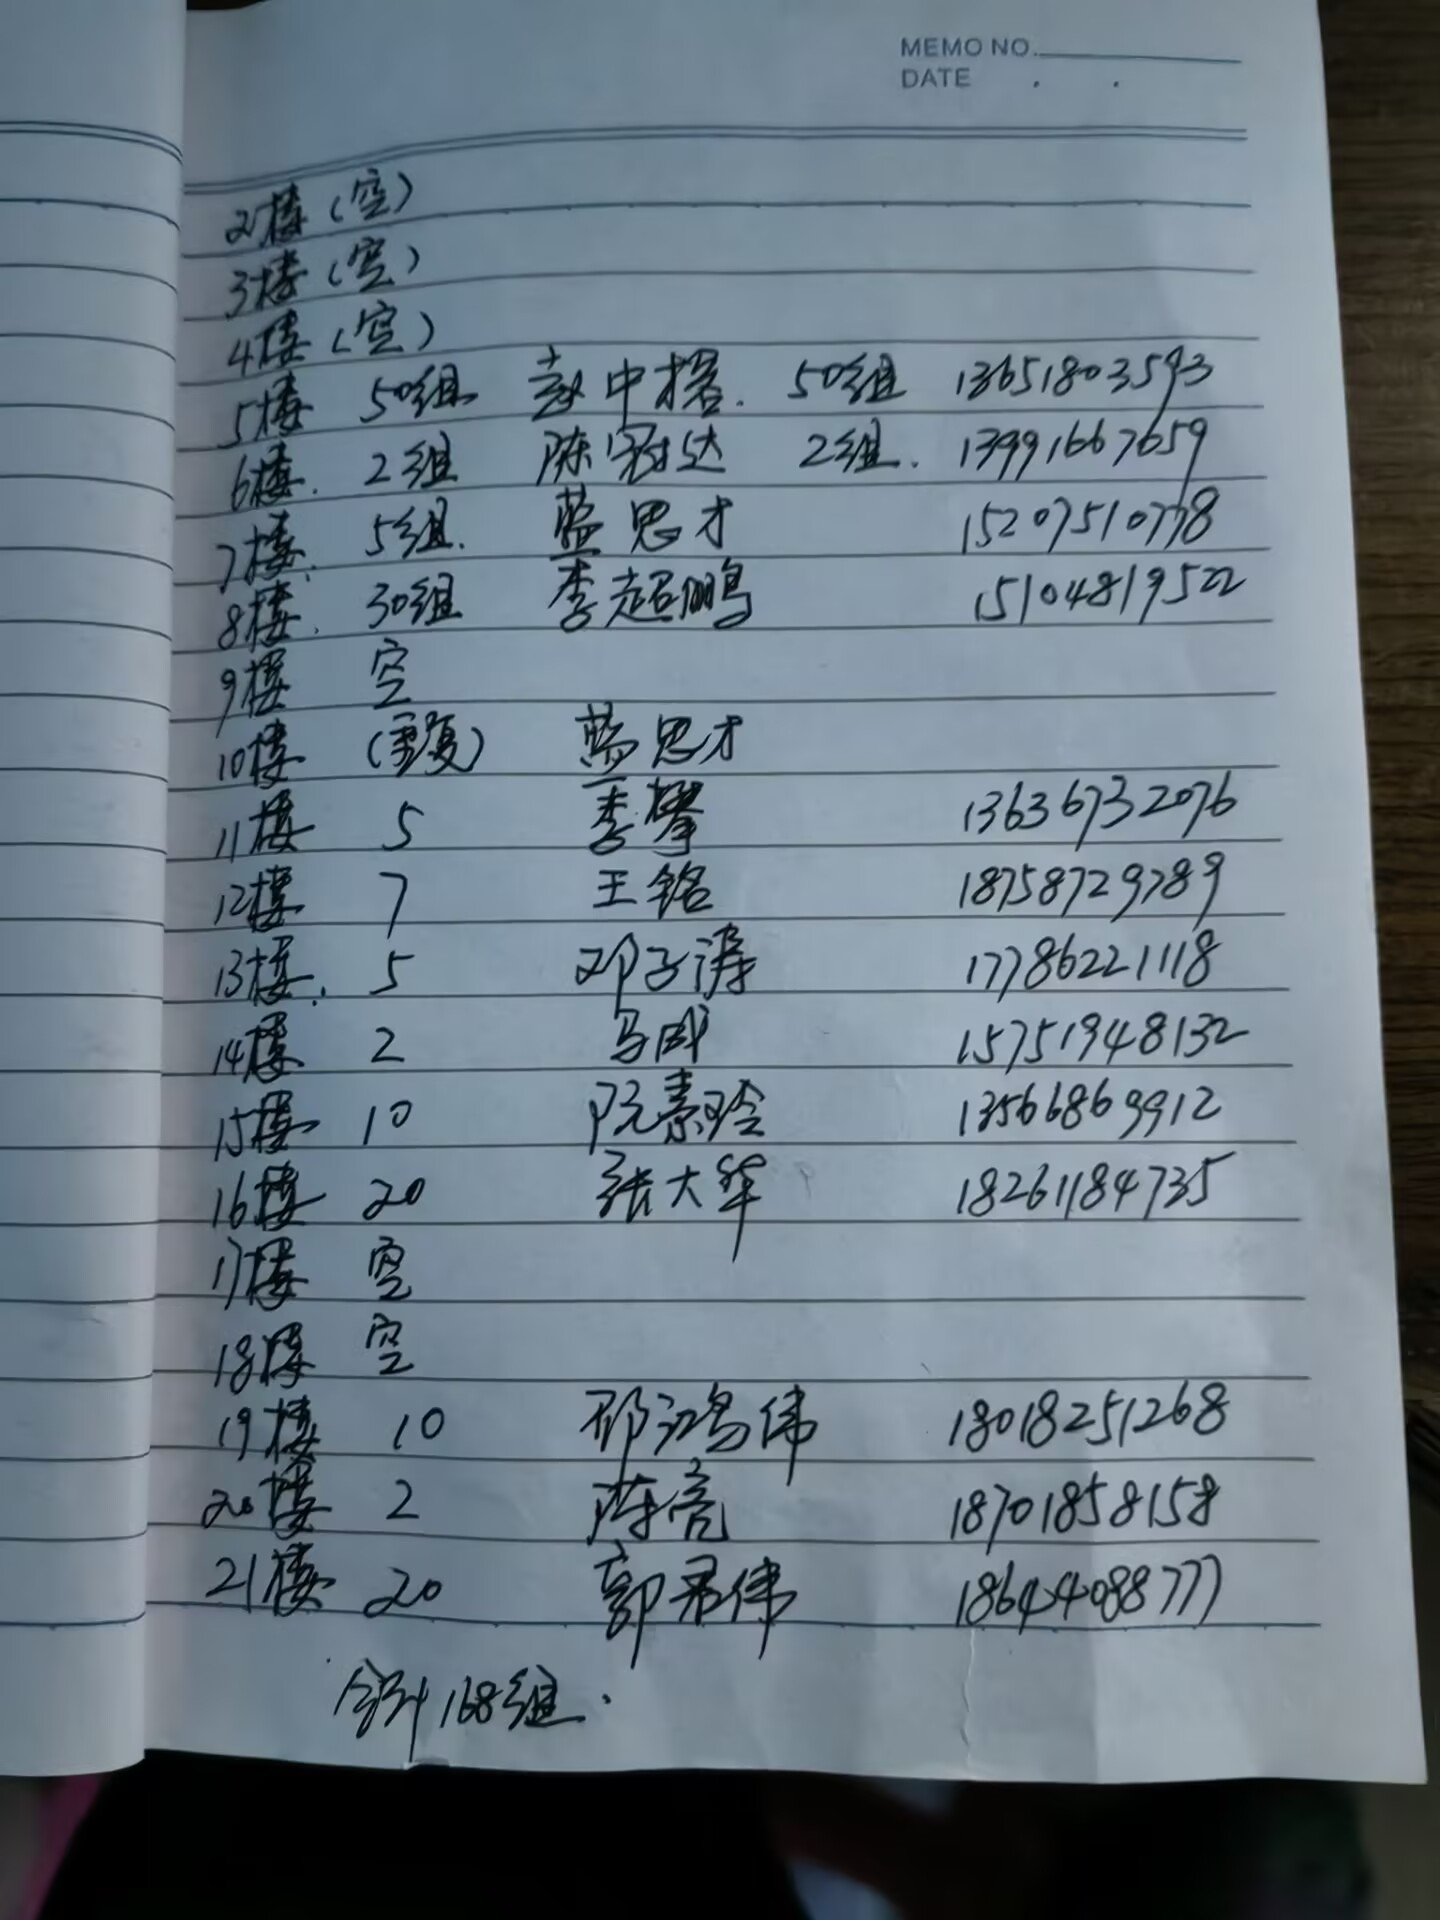 MEMO NO.
DATE . .
2楼(空)
3楼(空)
4楼(空)
5楼 50组 赵中楷. 50组 13651803593
6楼. 2组 陈冠达 2组. 13991667659
7楼. 5组. 蓝思才 15207510778
8楼. 30组 李超鹏 15104819522
9楼 空
10楼 (重复) 蓝思才
11楼 5 李攀 13636732076
12楼 7 王铭 18758729789
13楼. 5 邓子涛 17786221118
14楼 2 马威 15751948132
15楼 10 阮素玲 13566869912
16楼 20 张大华 18261184735
17楼 空
18楼 空
19楼 10 邓鸿伟 18018251268
20楼 2 陈亮 18701858158
21楼 20 郭君伟 18644088777
合计168组.